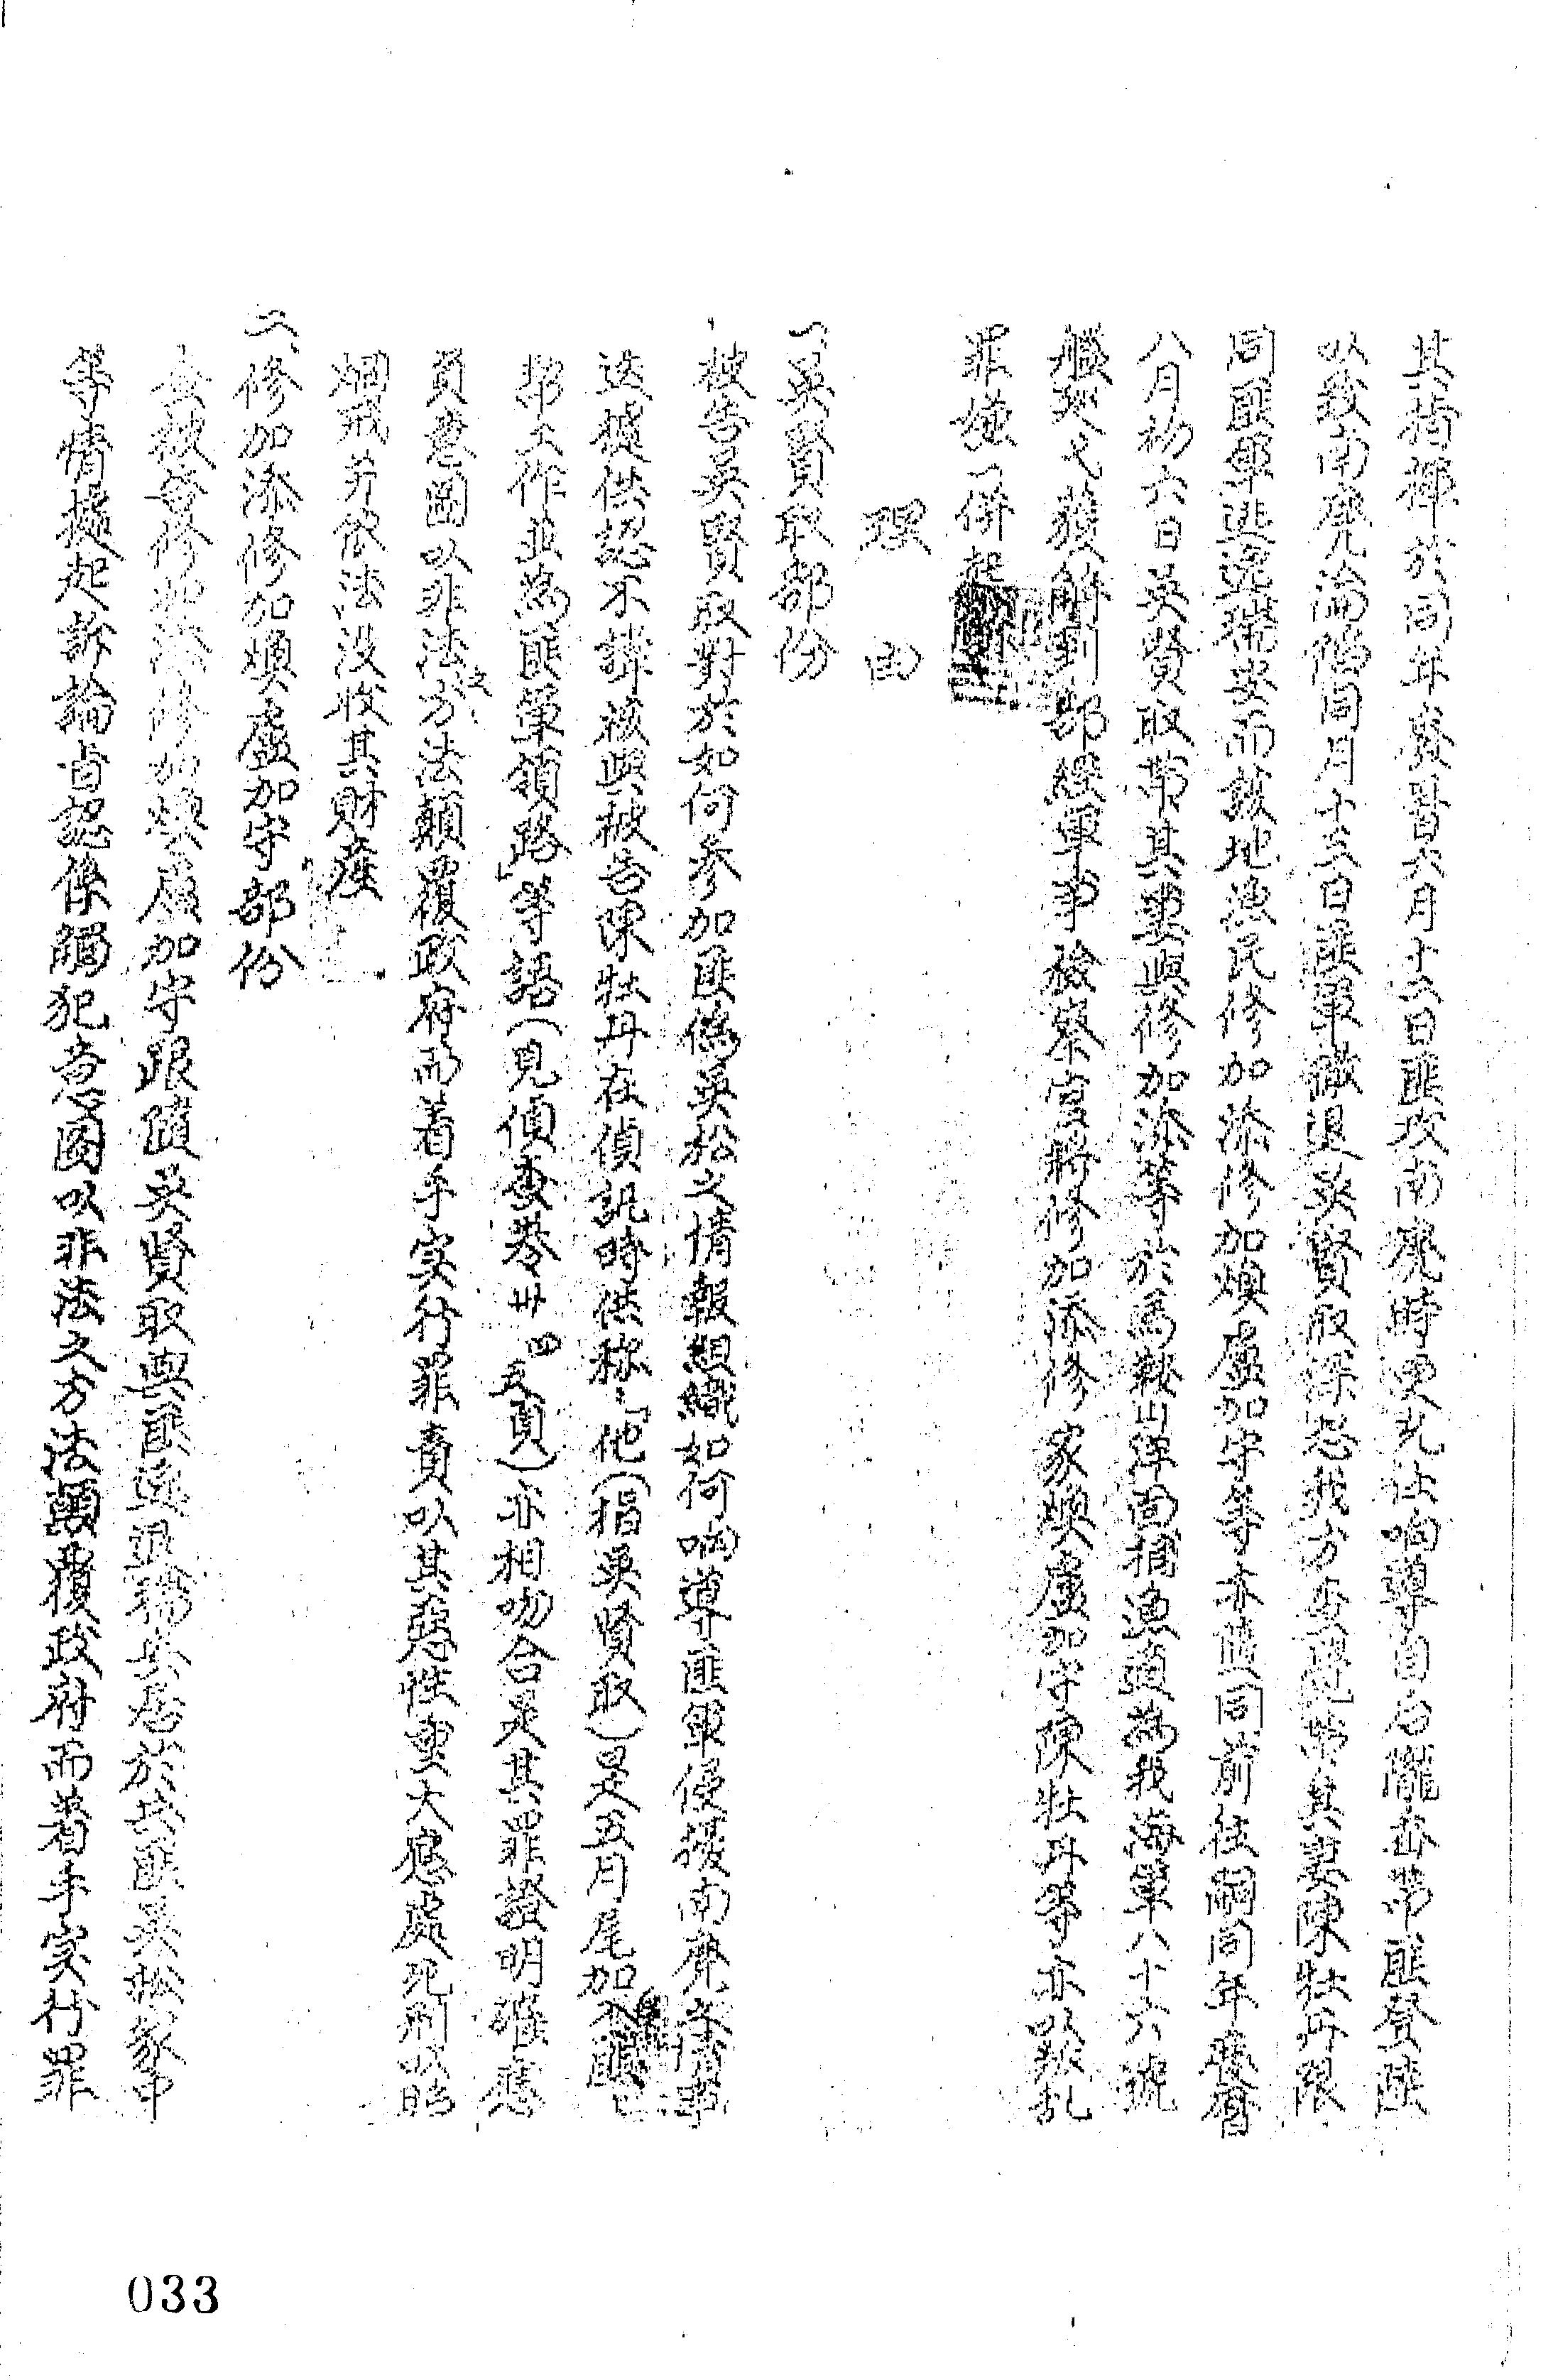 其指揮於同年農曆六月十六日匪攻南麂時吳先往响導由后隴岙帶匪登陸
以致南麂淪陷同月十三日匪軍撤退吳賢取深恐我方查究帶其妻陳牡丹
同匪軍逃逸瑞安而該地漁民修加添修加煥盧加守等亦隨同前往嗣同年農曆
八月初六日吳賢取帶其妻與修加添等於馬鞍山洋面捕漁適為我海軍八十六號
艦發見獲解到部經軍事檢察官將修加添修家煥盧加守陳牡丹等亦以叛乱
罪嫌一併起訴
理由
一、吳賢取部份
被告吳賢取對於如何參加匪偽吳松之情報組織如何响導匪軍侵擾南麂等情事
迭據供認不諱核與被告陳牡丹在偵訊時供称「他(指吳賢取)是五月尾加入
部工作並為匪軍領路」等語(見偵查卷廿四五頁)亦相吻合是其罪證明確應
負意圖以非法之方法顛覆政府而着手实行罪責以其惡性重大應處死刑以昭
烱戒并依法沒收其財產
二、修加添修加煥盧加守部份
查被告修加添修加煥盧加守跟隨吳賢取與匪逃退瑞安居於共匪吳松家中
等情據起訴論旨認係觸犯意圖以非法之方法顛覆政府而着手实行罪
033